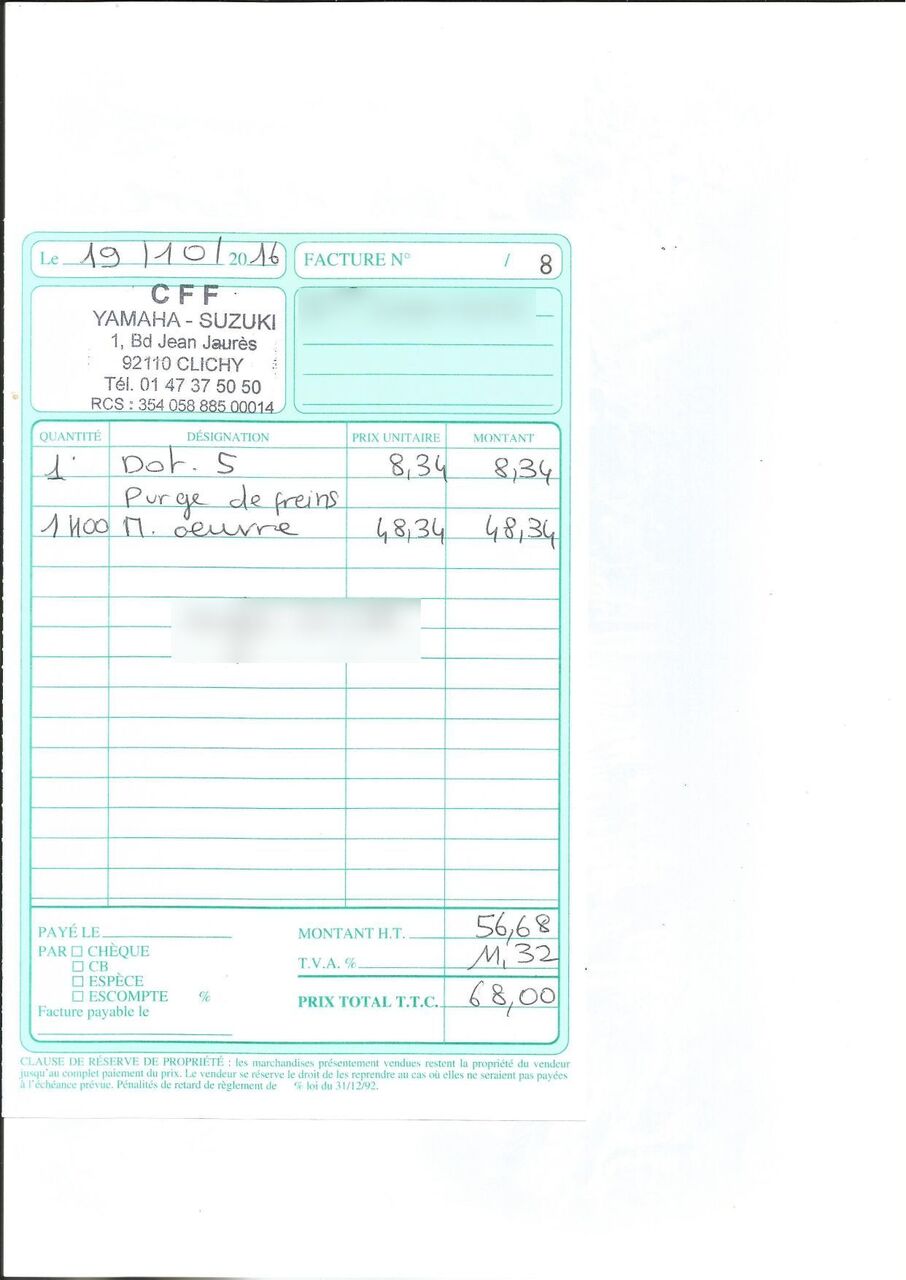 Le 19/10/2016
FACTURE N° / 8
CFF
YAMAHA - SUZUKI
1, Bd Jean Jaurès
92110 CLICHY
Tél. 01 47 37 50 50
RCS : 354 058 885 00014
QUANTITÉ DÉSIGNATION PRIX UNITAIRE MONTANT
1 Dot. 5 8,34 8,34
Purge de freins
1H00 M. oeuvre 48,34 48,34
PAYÉ LE
PAR ☐ CHÈQUE
☐ CB
☐ ESPÈCE
☐ ESCOMPTE %
Facture payable le
MONTANT H.T. 56,68
T.V.A. % 11,32
PRIX TOTAL T.T.C. 68,00
CLAUSE DE RÉSERVE DE PROPRIÉTÉ : les marchandises présentement vendues restent la propriété du vendeur
jusqu'au complet paiement du prix. Le vendeur se réserve le droit de les reprendre au cas où elles ne seraient pas payées
à l'échéance prévue. Pénalités de retard de règlement de % loi du 31/12/92.